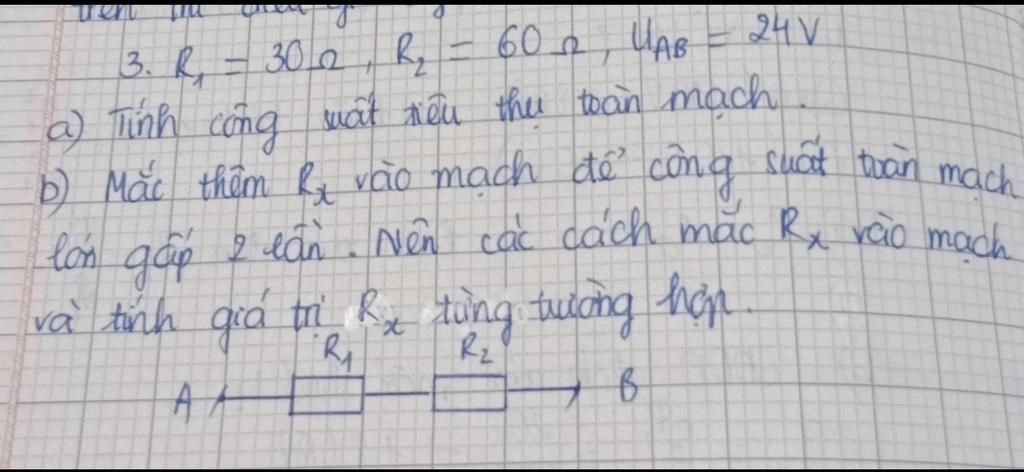 3. R₁ = 30Ω, R₂ = 60Ω, UAB = 24V
a) Tính công suất tiêu thụ toàn mạch.
b) Mắc thêm Rx vào mạch để công suất toàn mạch
lớn gấp 2 lần. Nên các cách mắc Rx vào mạch
và tính giá trị Rx từng trường hợp.
R₁ R₂
A B